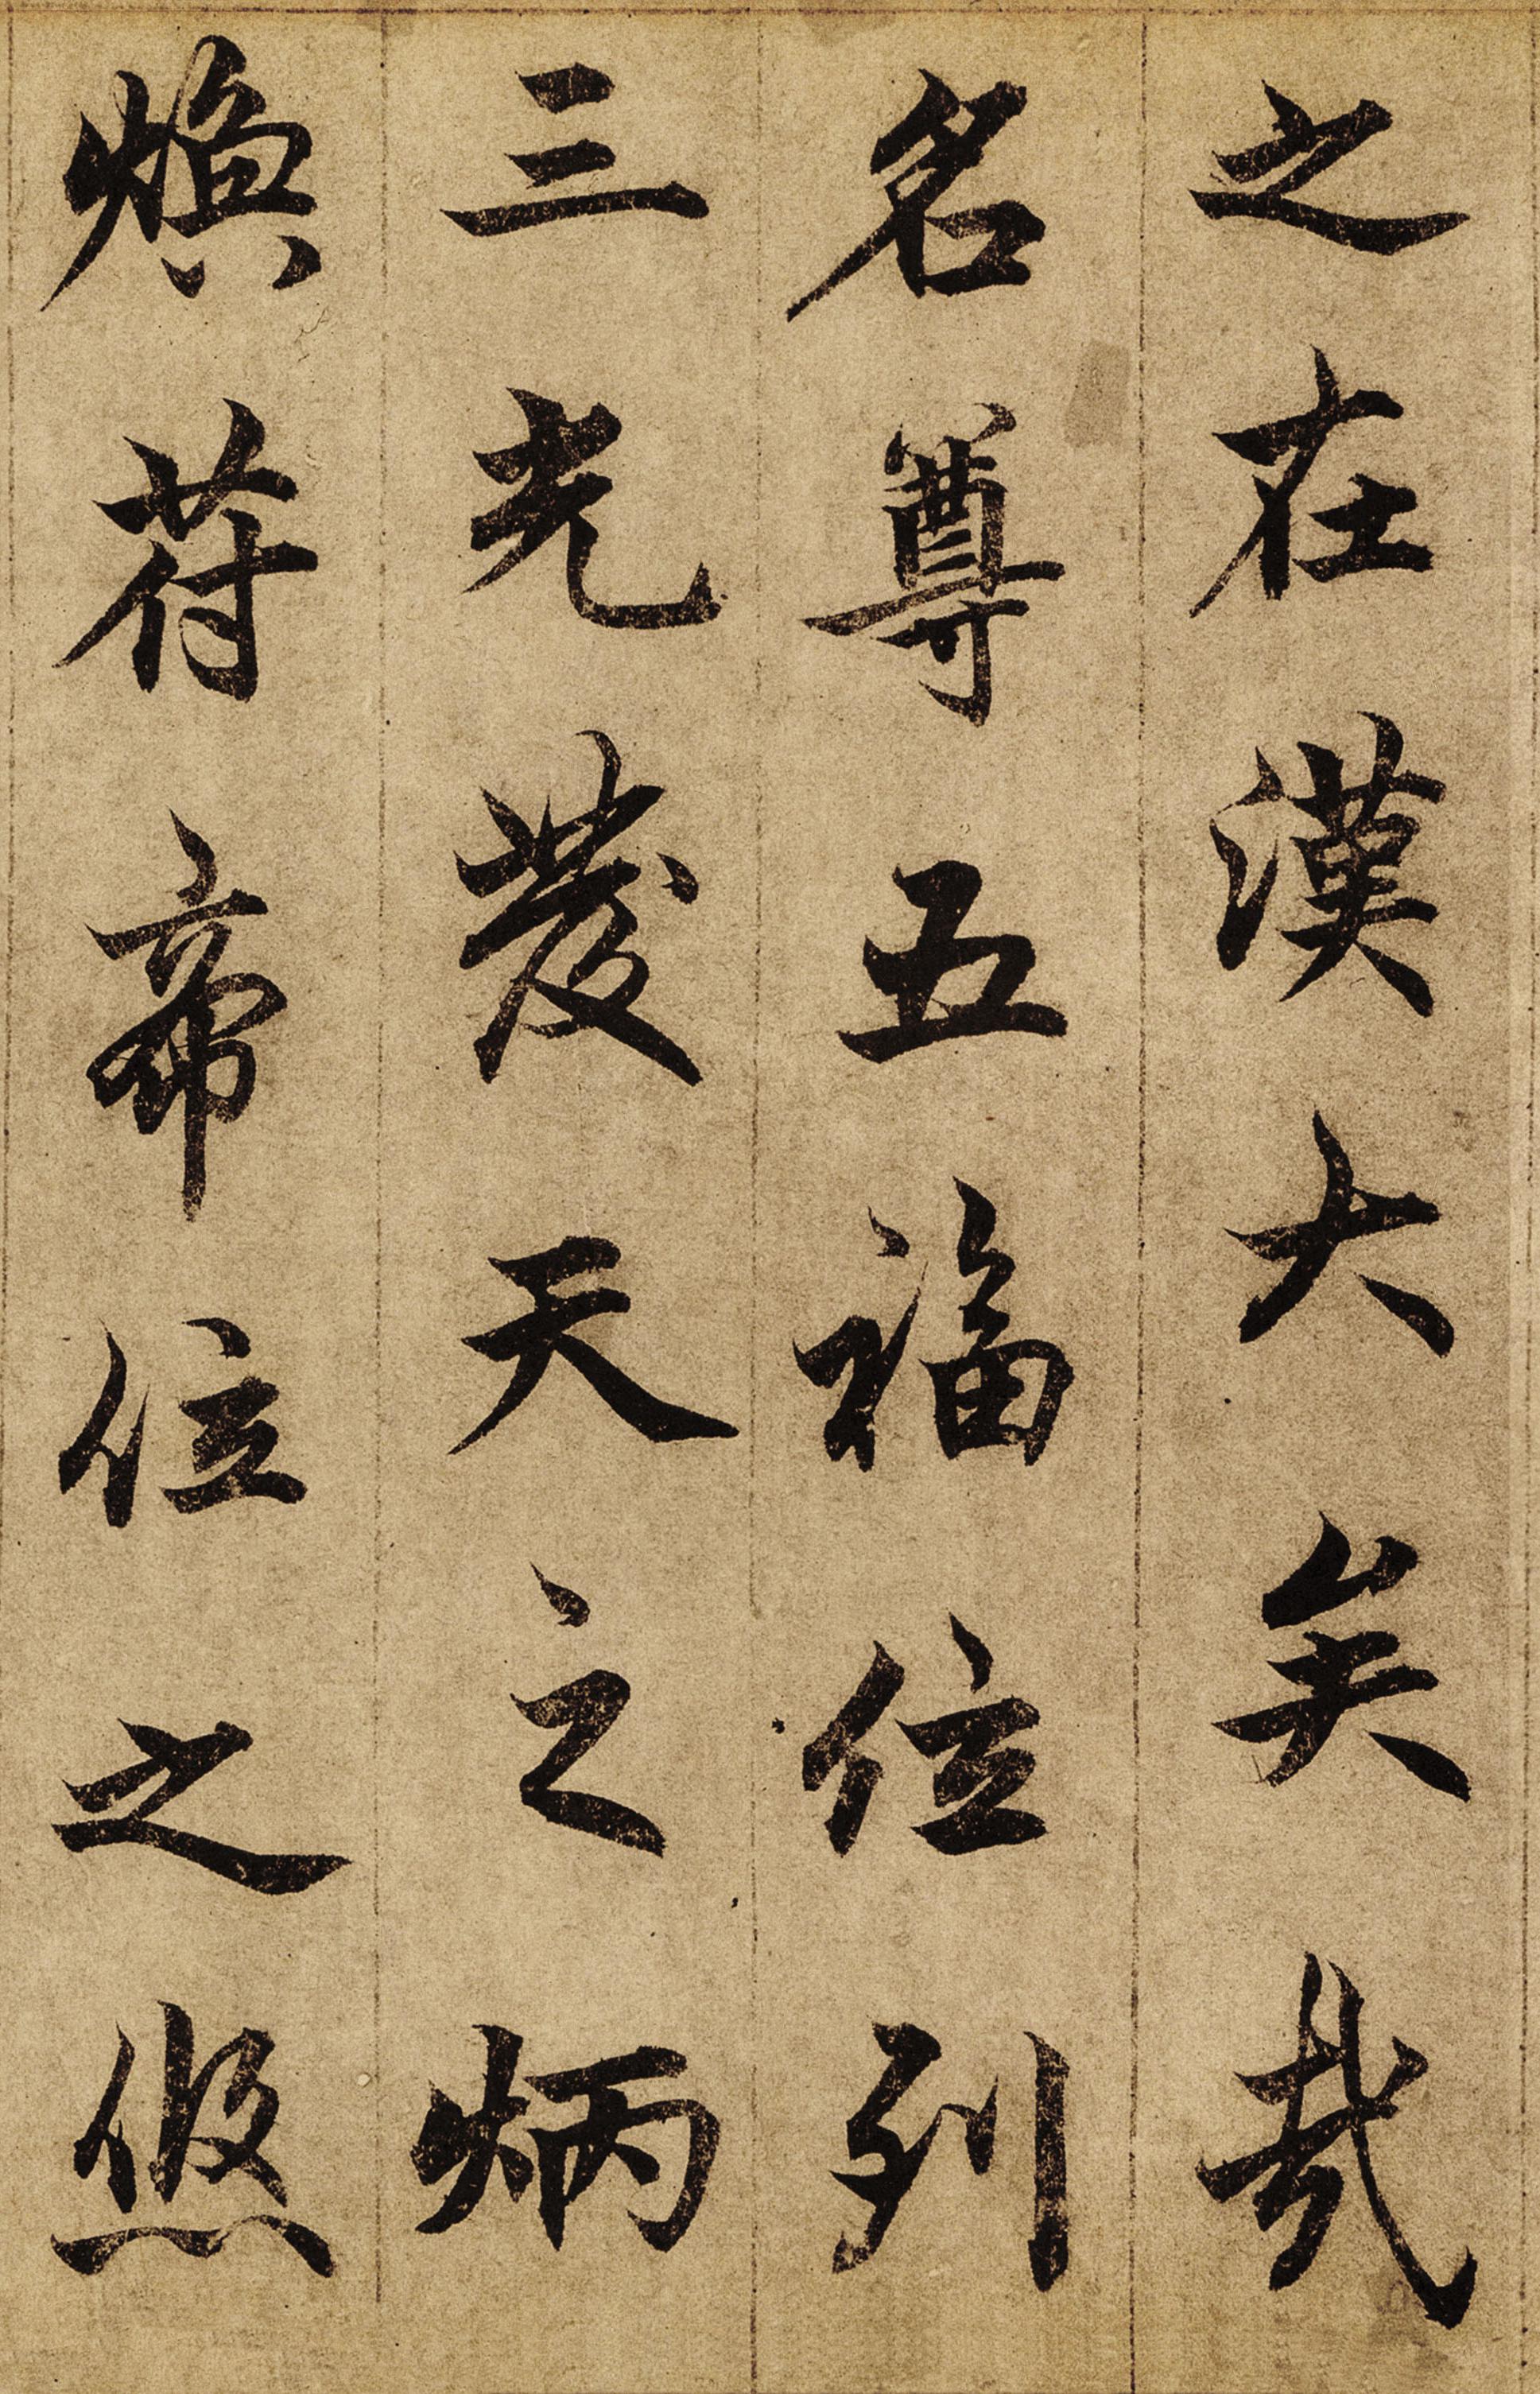 之在漢大矣哉
名尊五福位列
三光發天之炳
煥荷帝位之